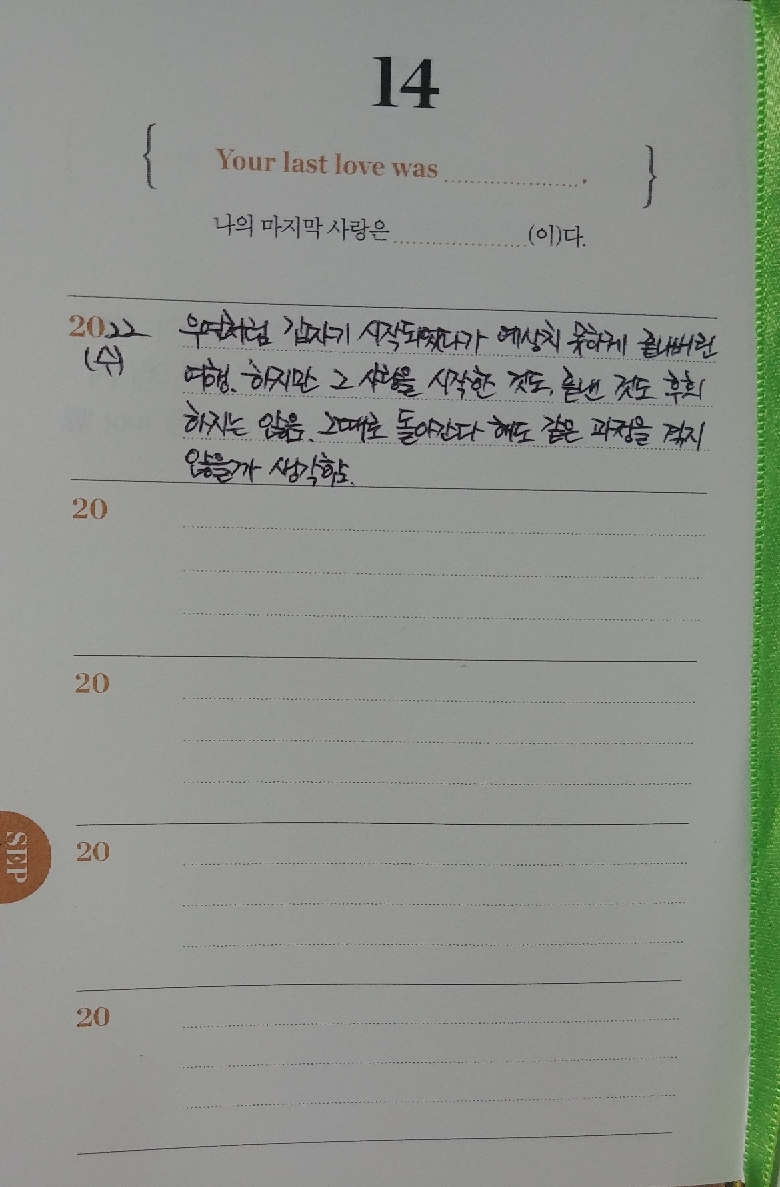 14
{ Your last love was ............ . }
나의 마지막 사랑은 ............ (이)다.
2022 우연처럼 갑자기 시작되었다가 예상치 못하게 끝내버린
(수) 여행. 하지만 그 사랑을 시작한 것도, 끝낸 것도 후회
하지는 않음. 그때로 돌아간다 해도 같은 과정을 겪지
않을까 생각함.
20
20
20
SEP
20